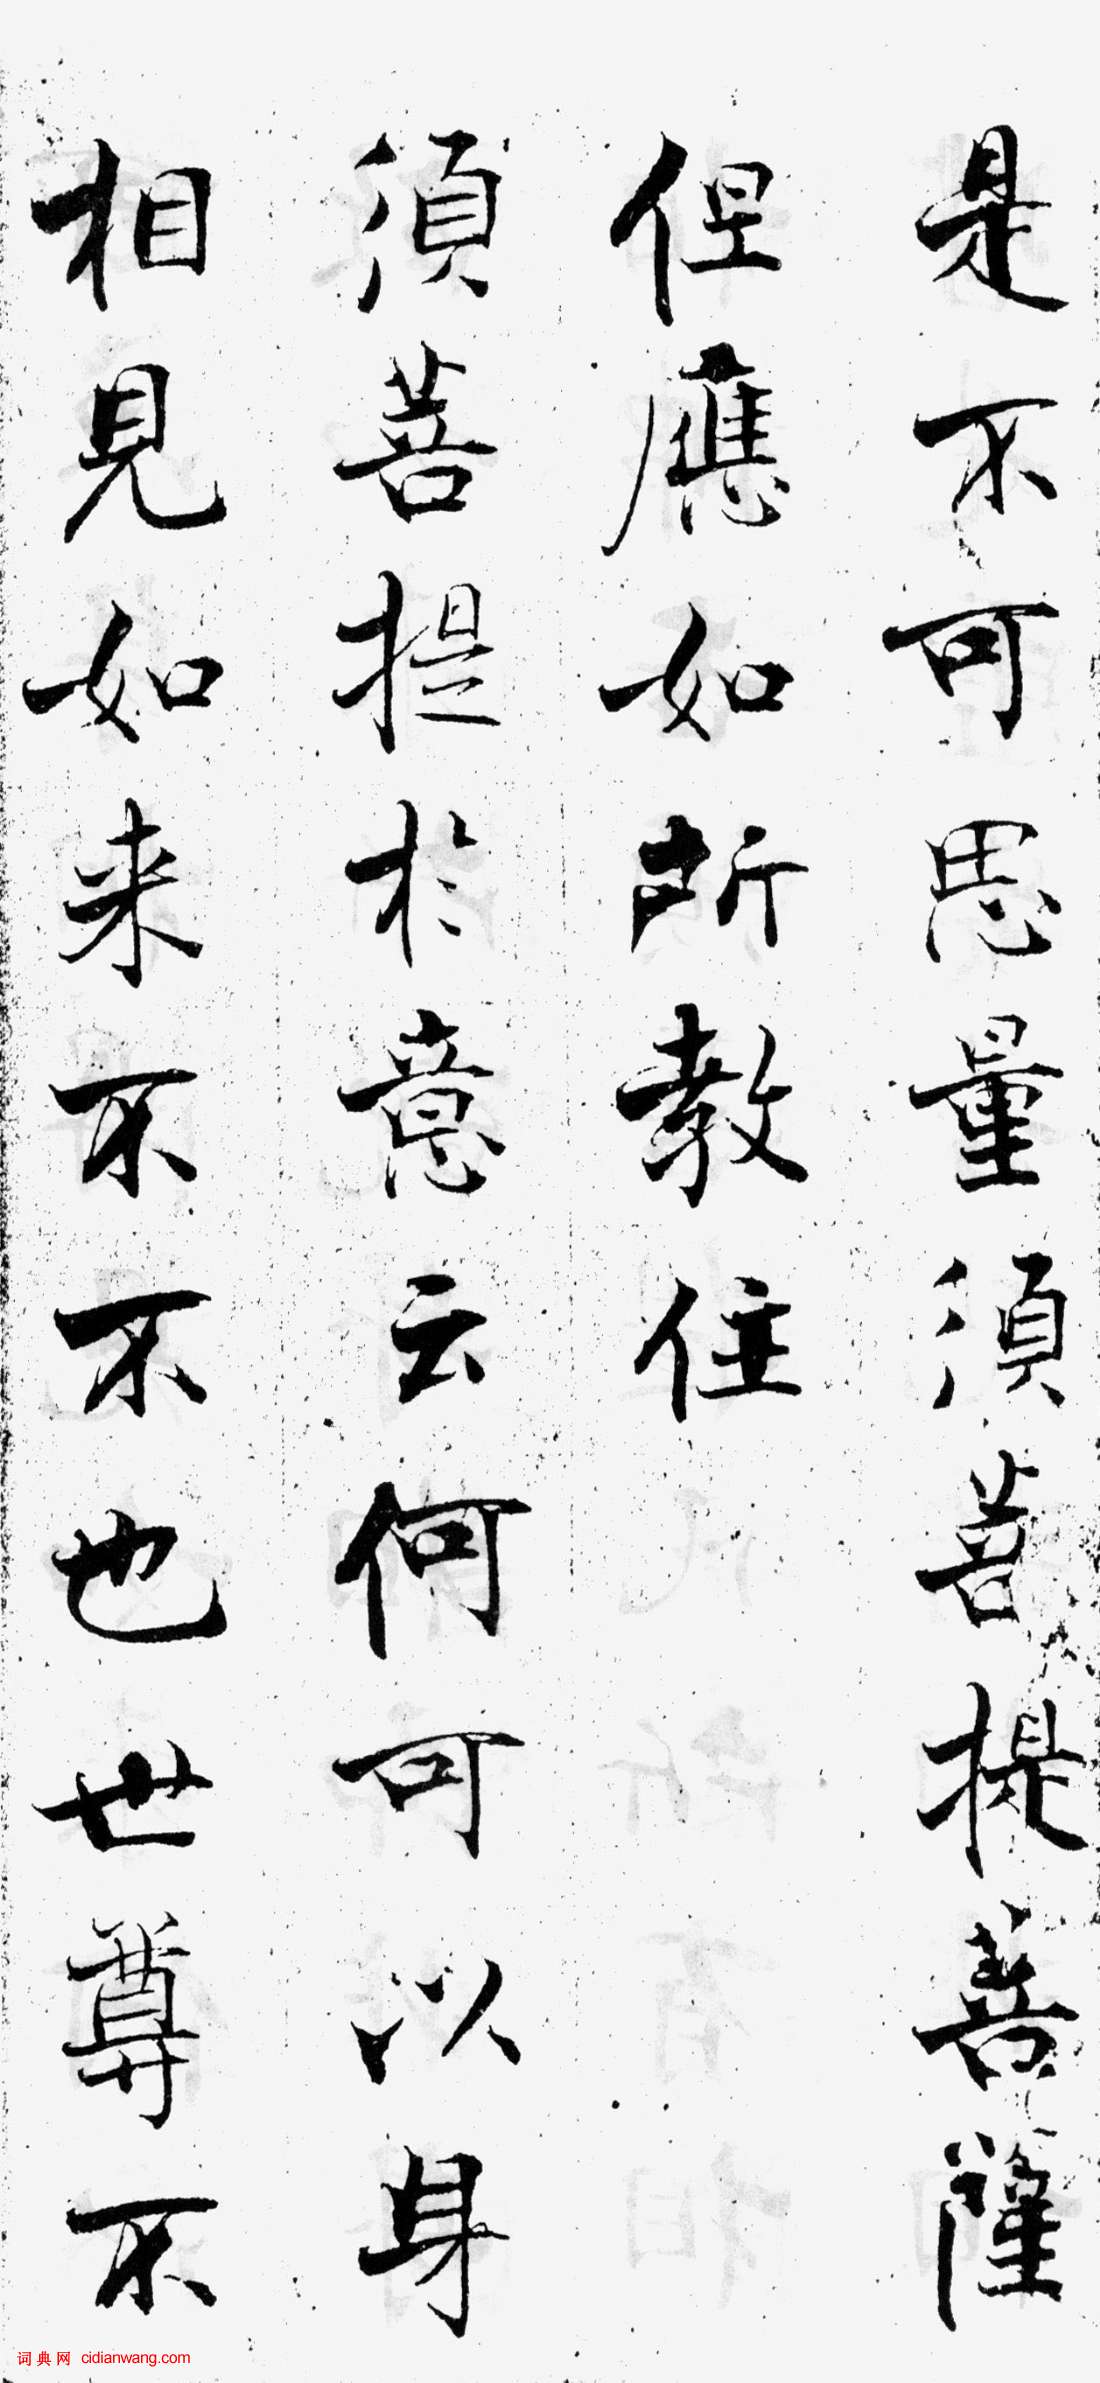 是不可思量須菩提菩薩
但應如所教住
須菩提於意云何可以身
相見如来不不也世尊不
词典网 cidianwang.com